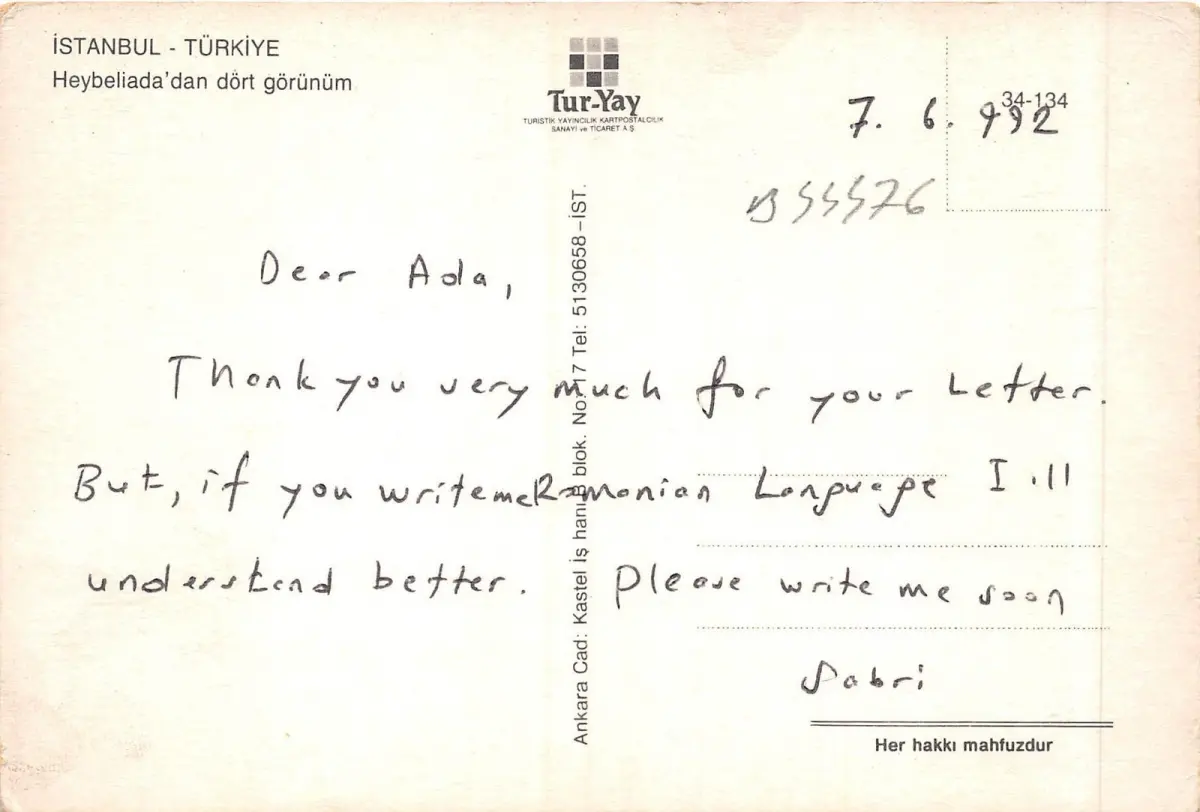 İSTANBUL - TÜRKİYE
Heybeliada'dan dört görünüm
Tur-Yay
TURISTIK YAYINCILIK KARTPOSTALCILIK
SANAYİ ve TİCARET A.Ş
34-134
7. 6. 992
B 55576
Dear Ada,
Thank you very much for your Letter.
But, if you write me Romanian Language I'll
understand better. Please write me soon
Sabri
Ankara Cad: Kastel İş hanı B blok. No: 17 Tel: 5130658 -İST.
Her hakkı mahfuzdur